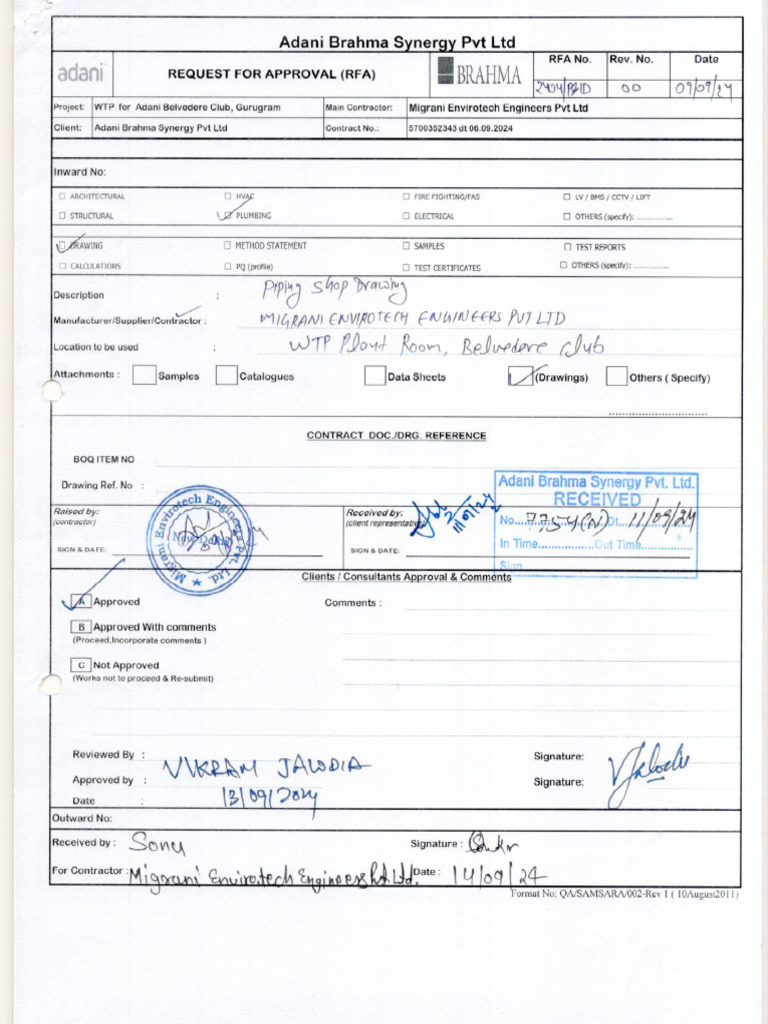 Adani Brahma Synergy Pvt Ltd
adani
REQUEST FOR APPROVAL (RFA)
BRAHMA
RFA No. Rev. No. Date
00 09/09/24
Project: WTP for Adani Belvedere Club, Gurugram Main Contractor: Migrani Envirotech Engineers Pvt Ltd
Client: Adani Brahma Synergy Pvt Ltd Contract No.: 5700352343 dt 06.09.2024
Inward No:
ARCHITECTURAL HVAC FIRE FIGHTING/FAS LV / BMS / CCTV / LIFT
STRUCTURAL PLUMBING ELECTRICAL OTHERS (specify): ................
DRAWING METHOD STATEMENT SAMPLES TEST REPORTS
CALCULATIONS PQ (profile) TEST CERTIFICATES OTHERS (specify): ................
Description : Piping Shop Drawing
Manufacturer/Supplier/Contractor : MIGRANI ENVIROTECH ENGINEERS PVT LTD
Location to be used : WTP Plant Room, Belvedere Club
Attachments : Samples Catalogues Data Sheets (Drawings) Others ( Specify)
................................
CONTRACT DOC./DRG. REFERENCE
BOQ ITEM NO :
Drawing Ref. No :
Adani Brahma Synergy Pvt. Ltd.
RECEIVED
No. 7754(N) Dt. 11/09/24
In Time.................Out Time..............
Sign
Raised by:
(contractor)
SIGN & DATE:
Migrani Envirotech Engineers Pvt. Ltd.
New Delhi
Received by:
(client representative)
11/09/24
SIGN & DATE:
Clients / Consultants Approval & Comments
A Approved Comments :
B Approved With comments
(Proceed,Incorporate comments )
C Not Approved
(Works not to proceed & Re-submit)
Reviewed By : VIKRAM JALODIA Signature: VJalodia
Approved by : Signature:
Date : 13/09/2024
Outward No:
Received by : Sonu Signature :
For Contractor : Migrani Envirotech Engineers Pvt. Ltd. Date : 14/09/24
Format No: QA/SAMSARA/002-Rev 1 ( 10August2011)